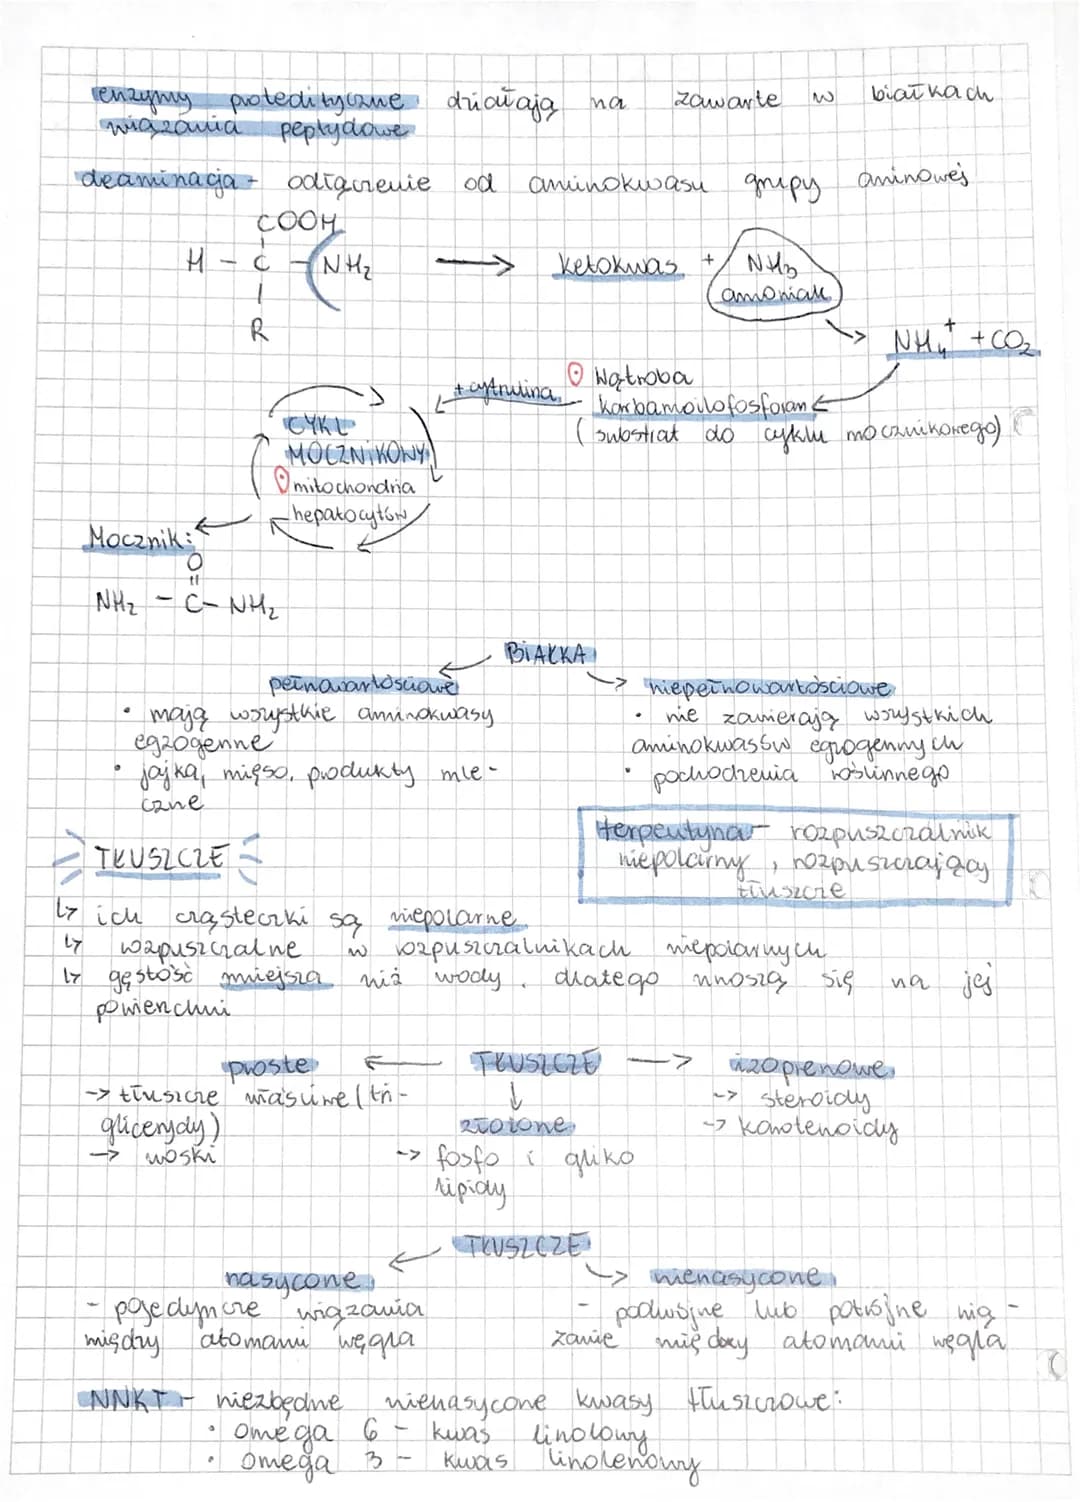 enzymy proteolityczne działają na zawarte w białkach
wiązania peptydowe
deaminacja - odłączenie od aminokwasu grupy aminowej
COOH
H - C - NH2 → ketokwas + NH3
amoniak
R
NH4+ + CO2
+ cytrulina Wątroba
karbamoilofosforan
(substrat do cyklu mocznikowego)
CYKL
MOCZNIKOWY
mitochondria
hepatocytów
Mocznik:
O
NH2 - C - NH2
BIAŁKA
pełnowartościowe niepełnowartościowe
• mają wszystkie aminokwasy
egzogenne
• jajka, mięso, produkty mle-
czne
• nie zawierają wszystkich
aminokwasów egzogennych
• pochodzenia roślinnego
terpentyna - rozpuszczalnik
niepolarny, rozpuszczający
tłuszcze
TŁUSZCZE
↳ ich cząsteczki są niepolarne
↳ rozpuszczalne w rozpuszczalnikach niepolarnych
↳ gęstość mniejsza niż wody, dlatego unoszą się na jej
powierzchni
proste ← TŁUSZCZE → izoprenowe
-> tłuszcze właściwe (tri-
glicerydy)
-> woski
złożone
-> fosfo i gliko
lipidy
-> steroidy
-> karotenoidy
TŁUSZCZE
nasycone nienasycone
- pojedyncze wiązania
między atomami węgla
- podwójne lub potrójne wią-
zanie między atomami węgla
NNKT - niezbędne nienasycone kwasy tłuszczowe:
• omega 6 - kwas linolowy
• omega 3 - kwas linolenowy